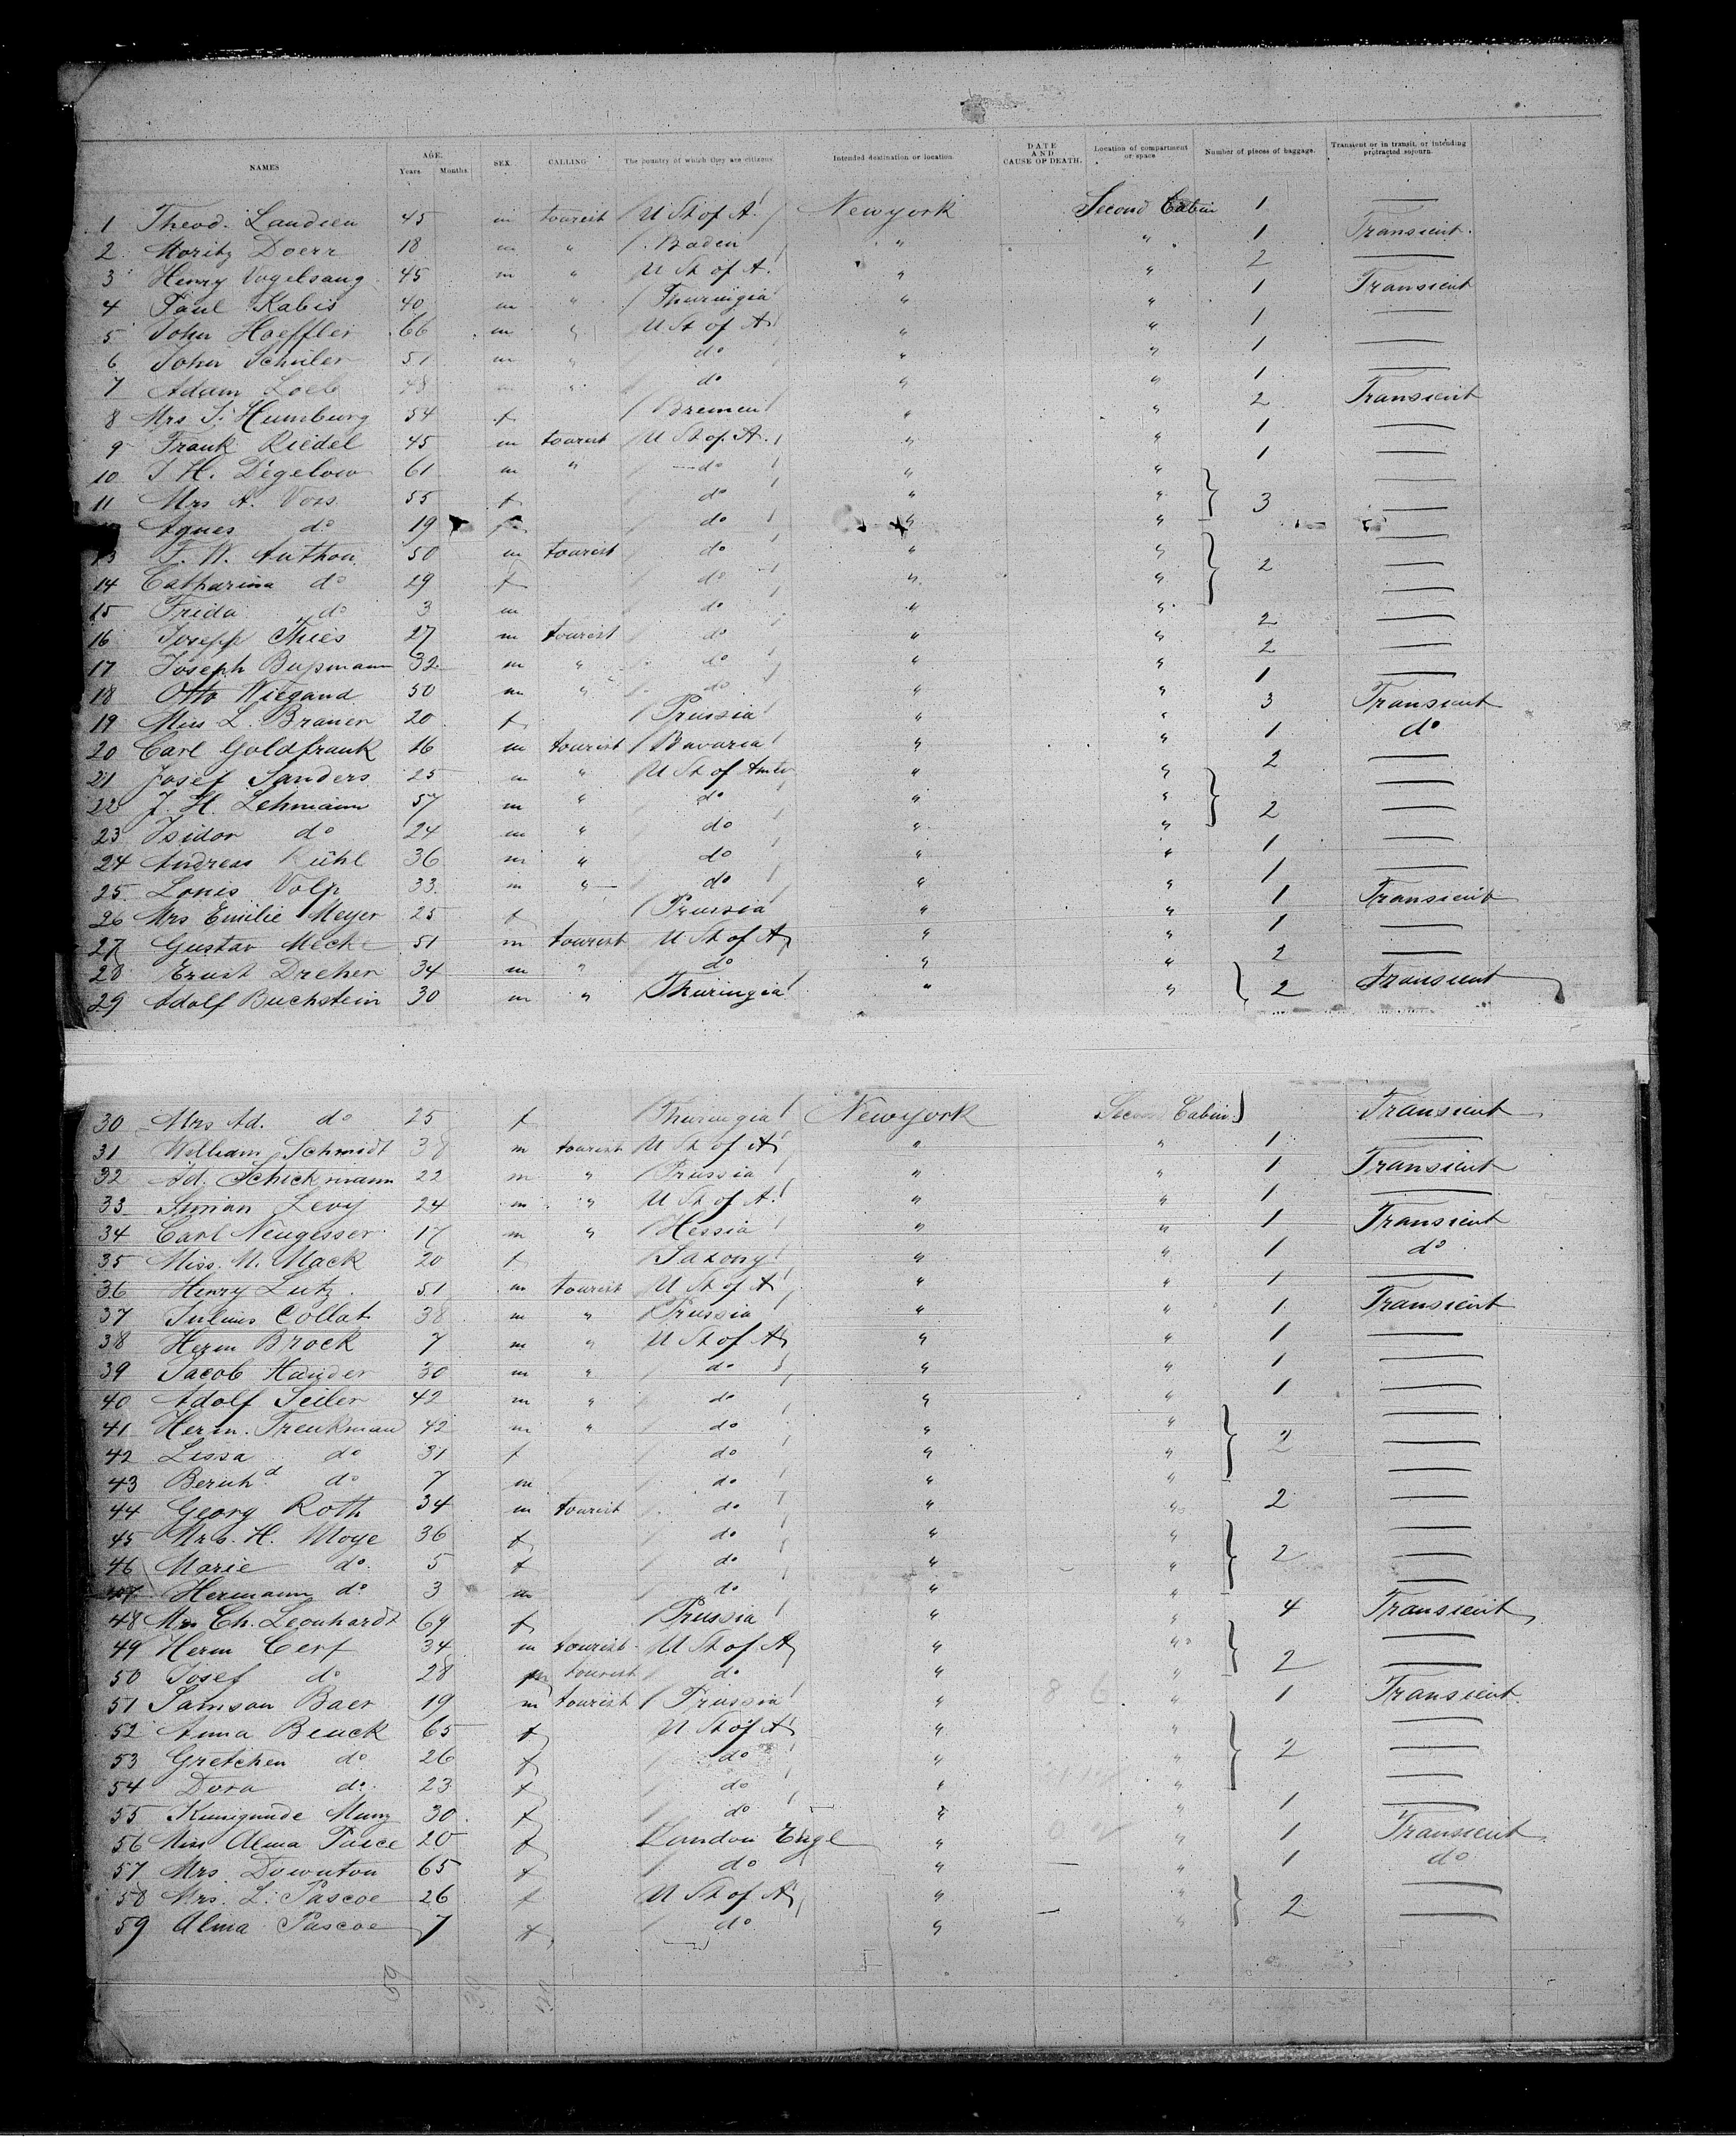 NAMES AGE. Years Months SEX CALLING The country of which they are citizens. Intended destination or location DATE AND CAUSE OF DEATH. Location of compartment or space Number of pieces of baggage. Transient or in transit, or intending protracted sojourn.
1 Theod. Landien 45 m tourist U St of A. Newyork Second Cabin 1 —
2 Moritz Doerr 18 m " Baden " " 1 Transient
3 Henry Vogelsang 45 m " U St of A. " " 2 —
4 Paul Kabis 40 m " Thuringia " " 1 Transient
5 John Hoeffler 66 m " U St of A " " 1 —
6 John Schuler 51 m " do " " 1 —
7 Adam Loeb 48 m " do " " 1 —
8 Mrs S. Humburg 54 f Bremen " " 2 Transient
9 Frank Riedel 45 m tourist U St of A. " " 1 —
10 J H. Degelow 61 m " do " " 1 —
11 Mrs A. Vois 55 f do " " 3 —
Agnes do 19 f do " " —
13 F. W. Anthon 50 m tourist do " " 2 —
14 Catharina do 29 f do " " —
15 Frida do 3 m do " " —
16 Joseph Thies 27 m tourist do " " 2 —
17 Joseph Bußmann 32 m " do " " 2 —
18 Otto Wiegand 50 m " do " " 1 —
19 Miss L. Brauer 20 f Prussia " " 3 Transient
20 Carl Goldfrank 16 m tourist Bavaria " " 1 do
21 Josef Sanders 25 m " U St of Amer " " 2 —
22 J. H. Lehmann 57 m " do " " 2 —
23 Isidor do 24 m " do " " —
24 Andreas Kühl 36 m " do " " 1 —
25 Lones Volp 33 m " do " " 1 —
26 Mrs Emilie Meyer 25 f Prussia " " 1 Transient
27 Gustav Mecke 51 m tourist U St of A " " 1 —
28 Ernst Dreher 34 m " do " " 2 —
29 Adolf Buchstein 30 m " Thuringia " " 2 Transient
30 Mrs Ad. do 25 f Thuringia Newyork Second Cabin Transient
31 William Schmidt 38 m tourist U St of A " " 1 —
32 Ad. Schickmann 22 m " Prussia " " 1 Transient
33 Siman Levy 24 m " U St of A. " " 1 —
34 Carl Neugesser 17 m " Hessia " " 1 Transient
35 Miss. M. Mack 20 f Saxony " " 1 do
36 Henry Lutz 51 m tourist U St of A " " 1 —
37 Julius Collat 38 m " Prussia " " 1 Transient
38 Herm Brock 7 m " U St of A " " 1 —
39 Jacob Hauder 30 m " do " " 1 —
40 Adolf Seiler 42 m " do " " 1 —
41 Herm. Treukman 42 m " do " " 2 —
42 Lissa do 31 f do " " —
43 Bernhd do 7 m do " " —
44 Georg Roth 34 m tourist do " " 2 —
45 Mrs. H. Moye 36 f do " " 2 —
46 Marie do 5 f do " " —
47 Hermann do 3 m do " " —
48 Mrs Ch. Leonhardt 69 f Prussia " " 4 Transient
49 Herm Cerf 34 m tourist U St of A " " 2 —
50 Josef do 28 m tourist do " " —
51 Samson Baer 19 m tourist Prussia " " 1 Transient
52 Anna Beuck 65 f U St of A " " 2 —
53 Gretchen do 26 f do " " —
54 Dora do 23 f do " " —
55 Kunigunde Munz 30 f do " " 1 —
56 Miss Alma Pasce 20 f London Engl " " 1 Transient
57 Mrs. Downton 65 f do " — " 1 do
58 Mrs. L. Pascoe 26 f U St of A " " 2 —
59 Alma Pascoe 7 f do " — " —
59